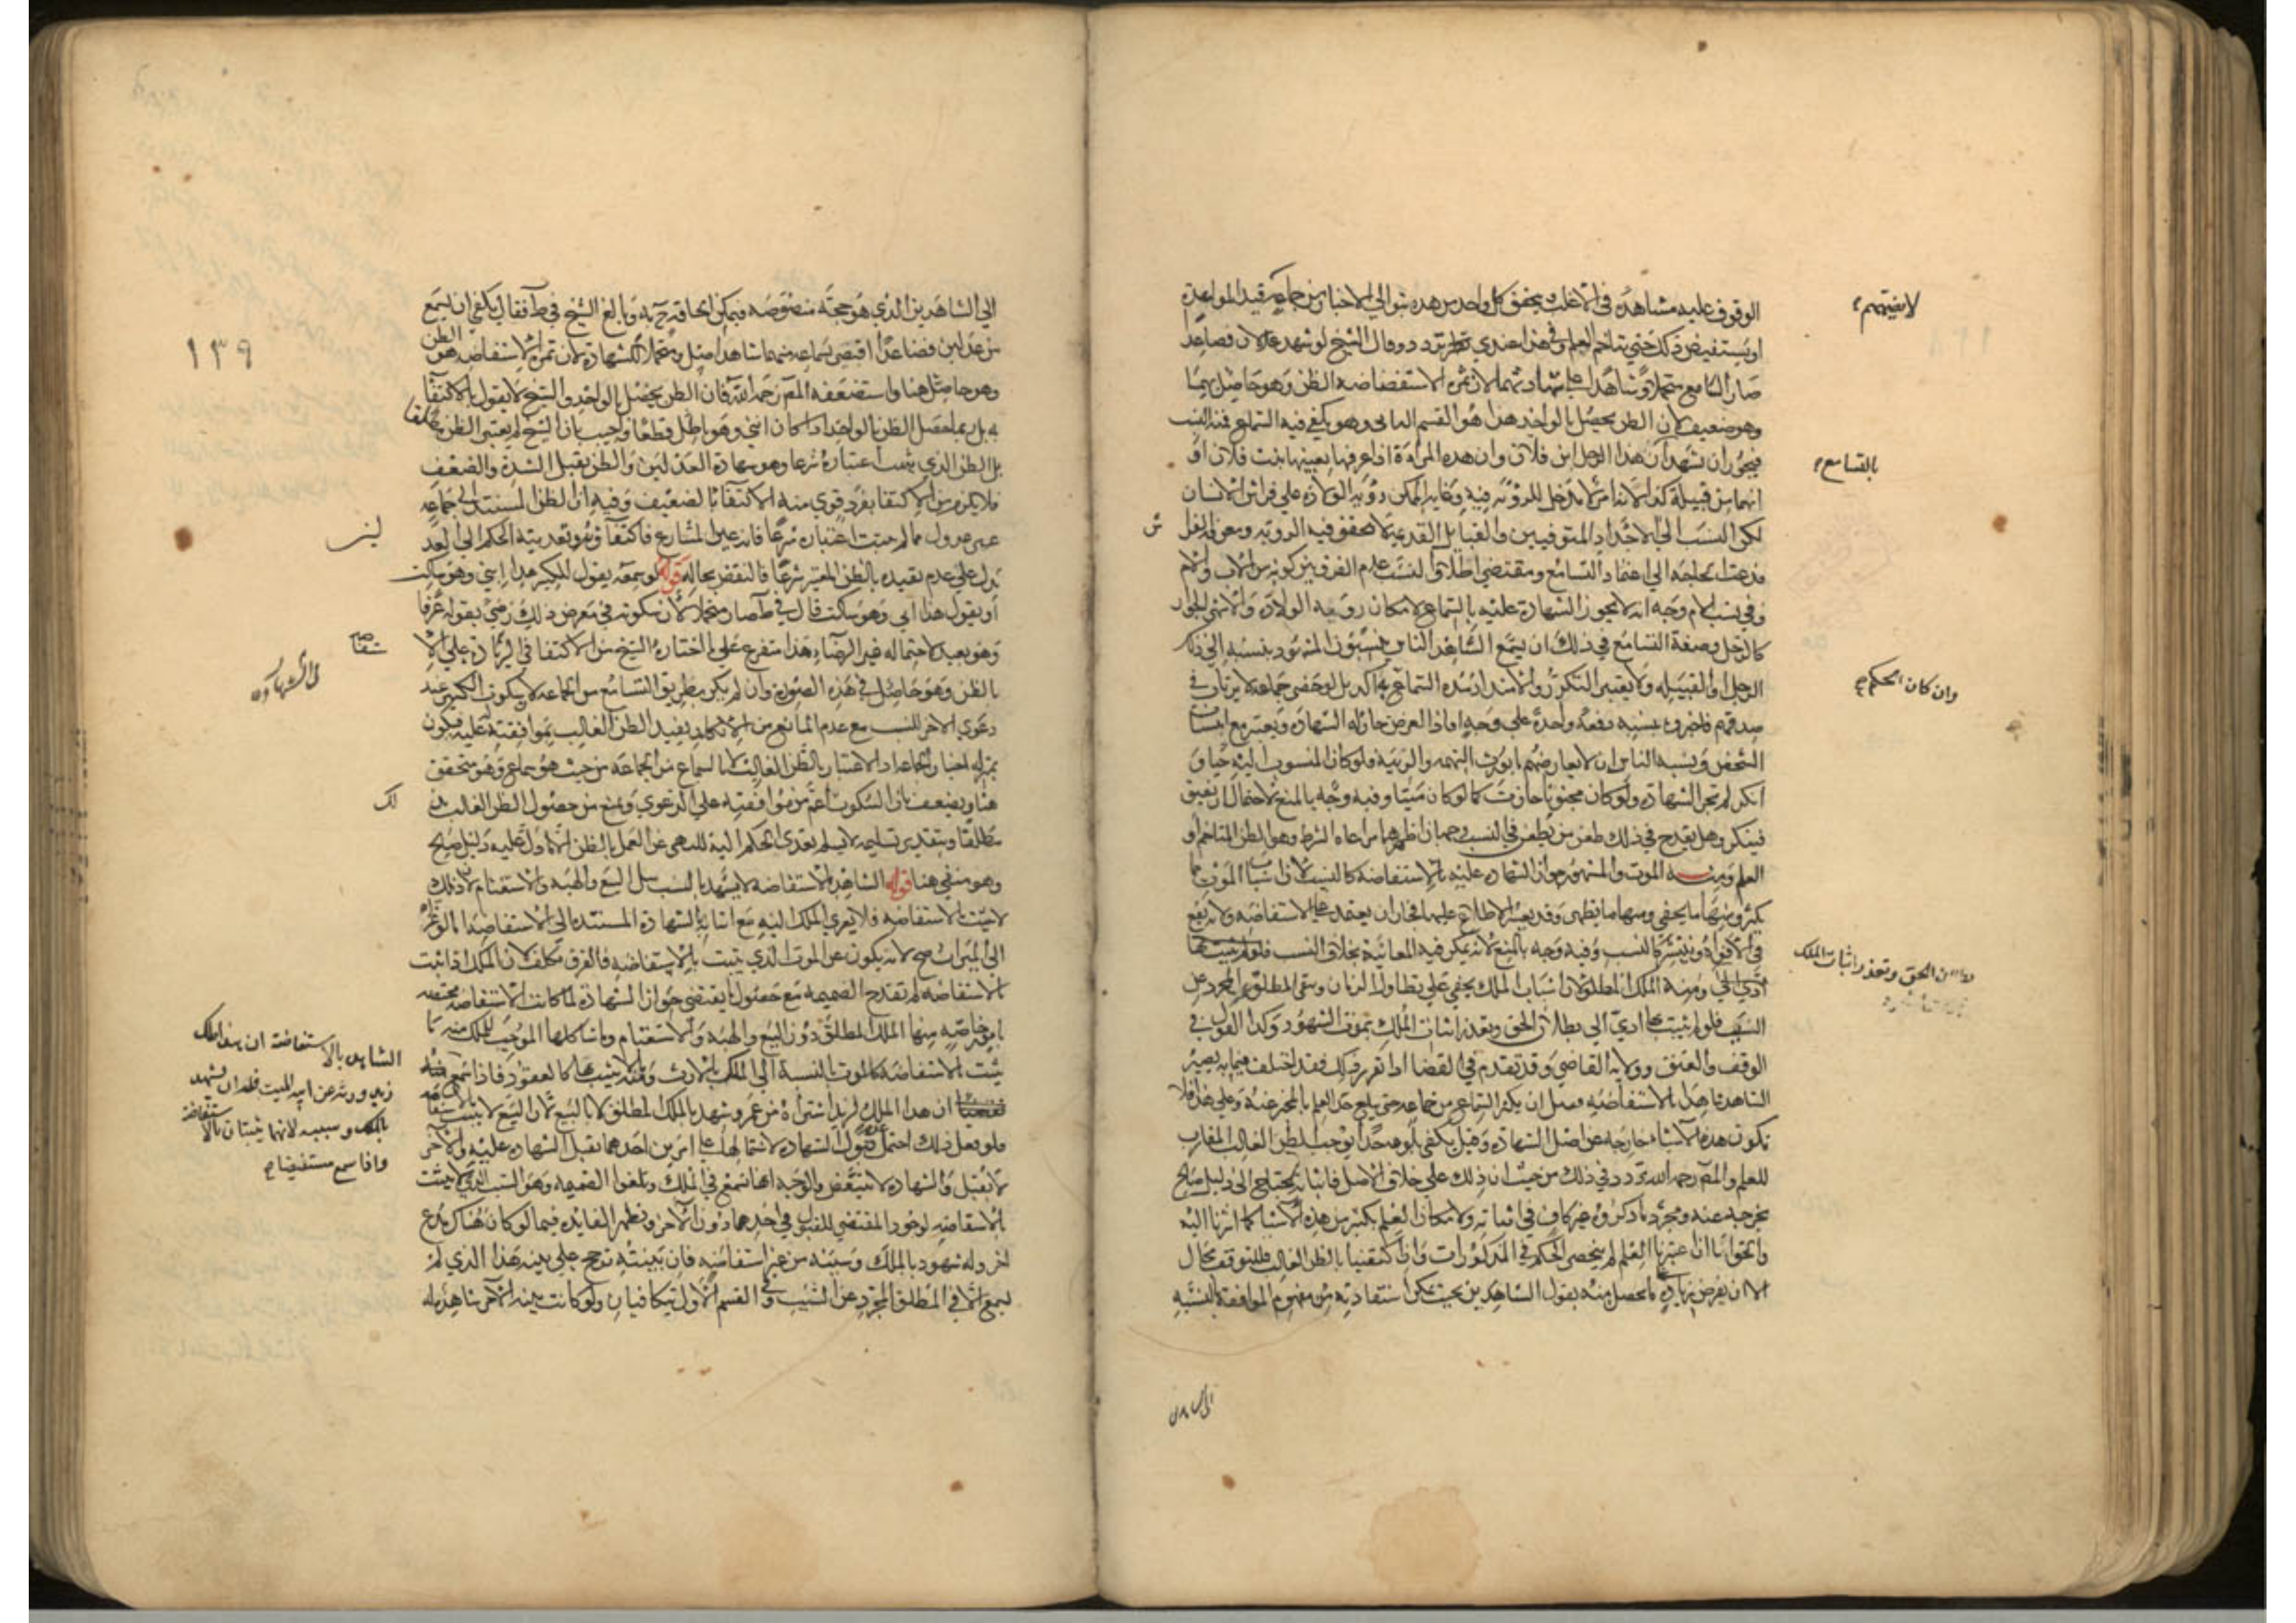 الوقوف عليه مشاهده في الاغلب ويتحقق كل واحد من هذه بتوالي الاخبار من جماعه قيد المواعدة
لا يضمهم
او يستفيض ذلك حتى يتاخم العلم وفي هذا عندي تردد وقال الشيخ لو شهد عدلان فصاعدا
صار السامع متحملا وشاهدا اصلا لا شاهدا على شهادتهما لان ثمرة الاستفاضه الظن وهو حاصل بهما
وهو ضعيف لان الظن يحصل بالواحد هذا هو القسم الثاني وهو ما يكفي فيه السماع فمنه النسب
فيجوز ان يشهد ان هذا الرجل ابن فلان وان هذه المراة اذا عرفها بعينها بنت فلان او
بالتسامع
انهما من قبيلة كذا لانه امر لا مدخل للرؤية فيه وغاية الممكن رؤية الولادة على فراش الانسان
لكن النسب الى الاجداد المتوفيين والقبائل القديمة لا تتحقق فيه الرؤية ومعرفة الفراش
فدعت الحاجه الى اعتماد التسامع ومقتضى اطلاق النسب عدم الفرق بين كونه من الاب والام
وفي نسب الام وجه انه لا يجوز الشهادة عليه بالسماع لامكان رؤية الولادة والاشهر الجواز
كالرجل وصفة التسامع في ذلك ان يسمع الشاهد الناس ينسبون المشهود بنسبه الى ذلك
الرجل او القبيلة ولا يعتبر التكرر والامتداد مدة السماع وان كان الحكم به آكد بل لو حضر جماعة لا يرتاب في
وان كان الحكم
صدقهم فاخبروه بنسبه دفعة واحدة على وجه افاد الغرض جاز له الشهادة ويعتبر مع انتساب
الشخص ونسبة الناس ان لا يعارضهم ما يورث التهمه والريبة فلو كان المنسوب اليه حيا و
انكر لم تجز الشهادة ولو كان مجنونا جازت كما لو كان ميتا وفيه وجه بالمنع لاحتمال ان يفيق
فينكر وهل يقدح في ذلك طعن من يطعن في النسب وجهان اظهرهما مراعاه الشرط وهو الظن المتاخم او
العلم ومنه الموت والمشهور جواز الشهادة عليه بالاستفاضة كالنسب لان اسباب الموت مما
يكثر ومنها ما يخفى ومنها ما يظهر وقد يعسر الاطلاع عليها فجاز ان يعتمد على الاستفاضه ولانه يقع
في الافواه وينتشر كالنسب وفيه وجه بالمنع لانه يمكن فيه المعاينة بخلاف النسب فلو لم يثبت بها
ادى الى ومنه الملك المطلق لان اسباب الملك يخفى على تطاول الزمان ويبقى المطلق المجرد عن
بطلان الحق وتعذر اثبات الملك
السبب فلو لم يثبت بها ادى الى بطلان الحق وتعذر اثبات الملك بموت الشهود وكذا القول في
الوقف والعتق وولاية القاضي وقد تقدم في القضا اذا تقرر ذلك فقد اختلف فيما به يصير
الشاهد شاهدا بالاستفاضه فقيل ان يكثر السماع من جماعه حتى يبلغ حد العلم بالمخبر عنه وعلى هذا فلا
تكون هذه الاشياء خارجه عن اصل الشهادة وقيل يكفي بلوغه حدا يوجب الظن الغالب المقارب
للعلم والمصنف رحمه الله تردد في ذلك من حيث ان ذلك على خلاف الاصل فاثباته يحتاج الى دليل صالح
يخرجه عنه ومجرد ما ذكروه غير كاف في اثباته ولامكان العلم بكثير من هذه الاشيا كما اشرنا اليه
والحق انا ان اعتبرنا العلم لم ينحصر الحكم في المذكورات وان اكتفينا بالظن الغالب فللتوقف مجال
الا ان يفرض زيادة ما يحصل منه بقول الشاهدين بحيث يمكن استفادته من مفهوم الموافقة بالنسبه
الى الشاهدين
الى الشاهدين الذي هو حجة منصوصه فيمكن الحاقه ح به وبالغ الشيخ في ط فقال يكفي ان يسمع
١٣٩
من عدلين فصاعدا فيصير بسماعه منهما شاهدا اصل ومتحملا للشهادة لان ثمرة الاستفاضه هو الظن
وهو حاصل هنا واستضعفه المصنف رحمه الله فان الظن يحصل بالواحد والشيخ لا يقول بالاكتفا
به بل ربما حصل الظن بالواحد اذا كان انثى وهو باطل قطعا واجيب بان الشيخ لم يعتبر الظن مطلقا
بل الظن الذي ثبت اعتباره شرعا وهو شهادة العدلين والظن يقبل الشدة والضعف
فلا يلزم من الاكتفا بفرد قوي منه الاكتفا بالضعيف وفيه ان الظن المستند الى جماعه
غير عدول مما لم يثبت اعتباره شرعا فانه عين المتنازع فاكتفاؤه به وتعديته الحكم الى العدلين
لين
يدل على عدم تقييده بالظن المعتبر شرعا فالنقض بحاله قوله لو سمعه يقول للكبير هذا ابني وهو ساكت
او يقول هذا ابي وهو ساكت قال في ط صار متحملا لان سكوته في معرض ذلك رضي بقوله عرفا
وهو بعيد لاحتماله غير الرضاء هذا متفرع على ما اختاره الشيخ من الاكتفا في الشهادة على الا
ستفاضه
في الشهادة
بالظن وهو حاصل في هذه الصورة وان لم يكن بطريق التسامع من الجماعه لان سكوت الكبير عند
دعوى الاخر للنسب مع عدم المانع من الانكار يفيد الظن الغالب بموافقته عليه فيكون
بمنزله اخبار الجماعه اذ الاعتبار بالظن الغالب لا بالسماع من الجماعه من حيث هو سماع وهو متحقق
هنا ويضعف بان السكوت اعم من موافقته على الدعوى ويمنع من حصول الظن الغالب بذ
لك
مطلقا وبتقدير تسليمه لا يسلم تعدى الحكم اليه للنهي عن العمل بالظن الا ما دل عليه دليل صالح
وهو منفي هنا قوله الشاهد بالاستفاضه لا يشهد بالسبب مثل البيع والهبه والاستغنام لان ذلك
لا يثبت بالاستفاضه فلا يعزى الملك اليه مع اثباته بالشهادة المستنده الى الاستفاضه اما لو عزاه
الى الميراث صح لانه يكون عن الموت الذي يثبت بالاستفاضه والفرق تكلف لان الملك اذا ثبت
بالاستفاضه لم تقدح الضميمه مع حصول ما يقتضي جواز الشهادة لما كانت الاستفاضه مختصه
بامور خاصه منها الملك المطلق دون البيع والهبه والاستغنام وما شاكلها الموجب للملك منه ما
يثبت بالاستفاضه كالموت بالنسبة الى الملك بالارث ومنه ما لا يثبت بها كالعقود فاذا سمع
الشاهد بالاستفاضة ان هذا ملك
زيد ورثه عن ابيه الميت فله ان يشهد
بالملك وسببه لانهما يثبتان بالاستفاضة
واذا سمع مستفيضا
ان هذا الملك لزيد اشتراه من عمرو شهد بالملك المطلق لا بالبيع لان البيع لا يثبت بالاستفاضه
فلو فعل ذلك احتمل قبول الشهادة لاشتمالها على امرين احدهما تقبل الشهادة عليه والاخر
لا تقبل والشهادة لا تتبعض والوجه انها تسمع في الملك وتلغوا الضميمه وهو السبب الذي لا يثبت
بالاستفاضه لوجود المقتضي للقبول في احدهما دون الاخر وتظهر الفايده فيما لو كان هناك مدع
اخر وله شهود بالملك وسببه من غير استفاضه فان بينته ترجح على بينه هذا الذي لم
يسمع الا في المطلق المجرد عن السبب وفي القسم الاول يتكافيان ولو كانت بينه الاخر شاهدة له